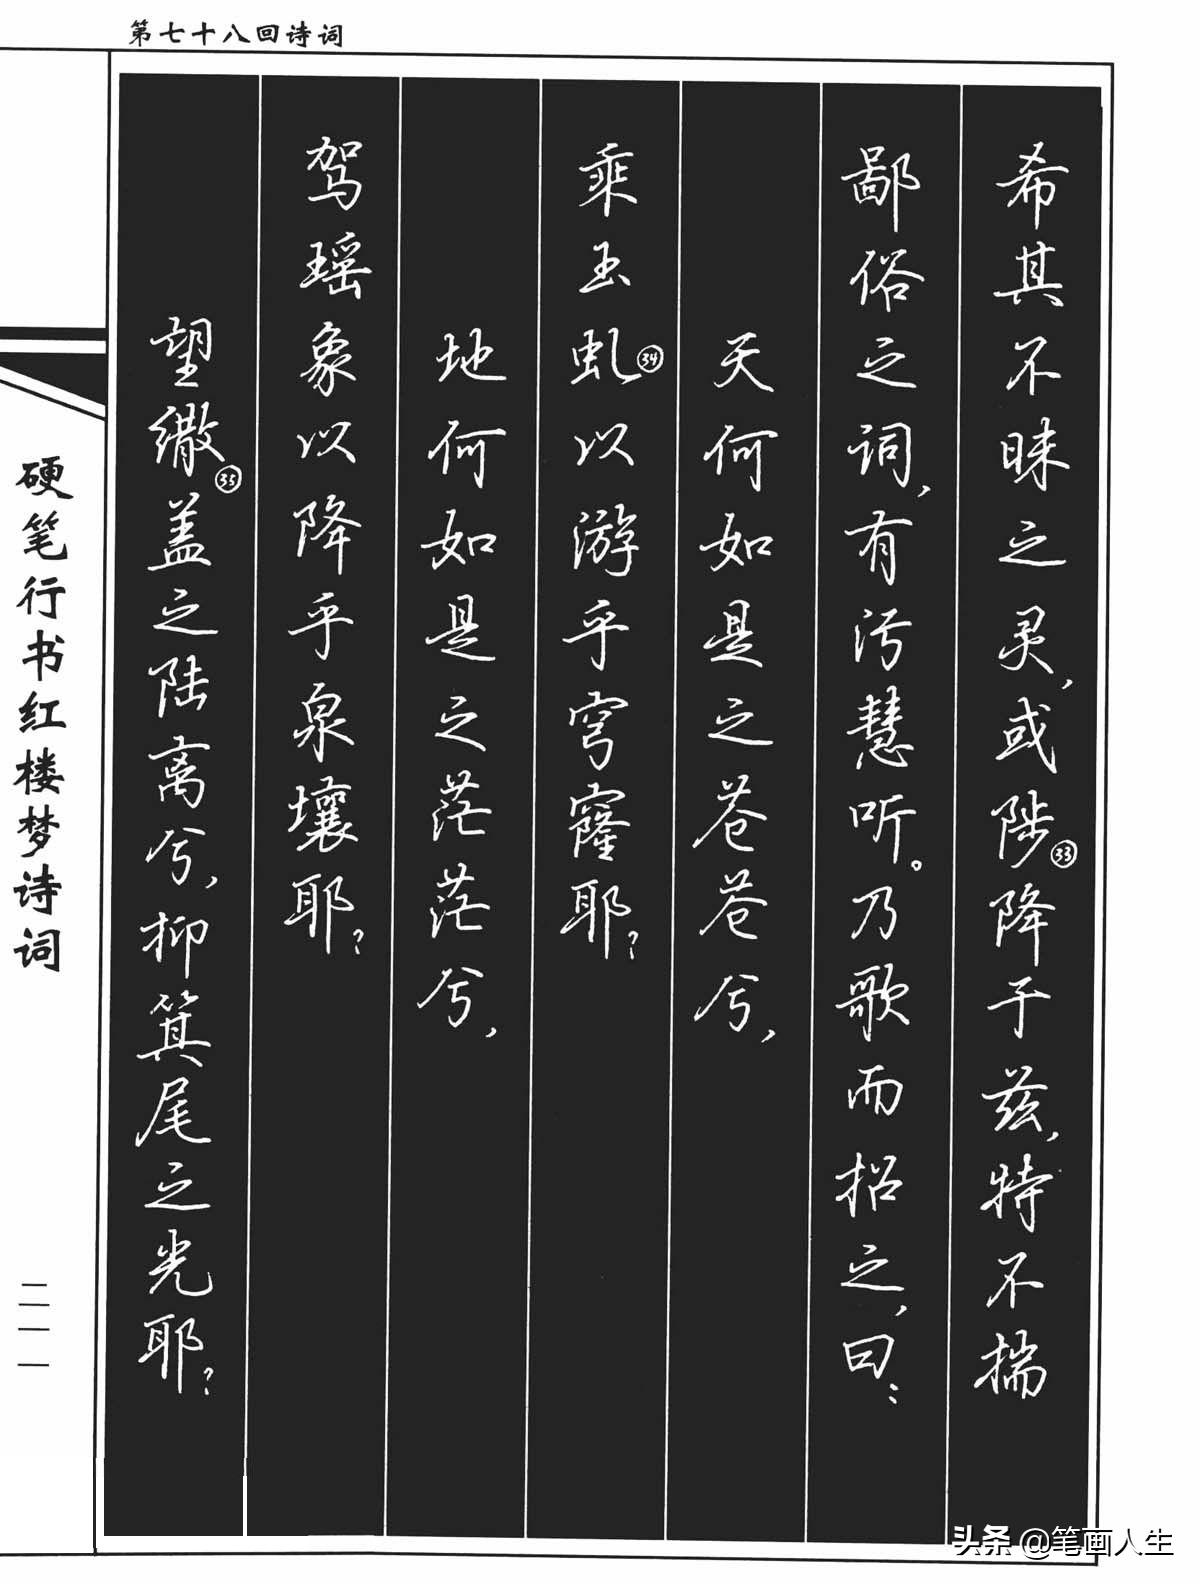 第七十八回诗词
希其不昧之灵，或陟㉝降于兹，特不揣
鄙俗之词，有污慧听。乃歌而招之，曰：
天何如是之苍苍兮，
乘玉虬㉞以游乎穹窿耶？
地何如是之茫茫兮，
驾瑶象以降乎泉壤耶？
望繖㉟盖之陆离兮，抑箕尾之光耶？
硬笔行书红楼梦诗词
二一一
头条 @笔画人生